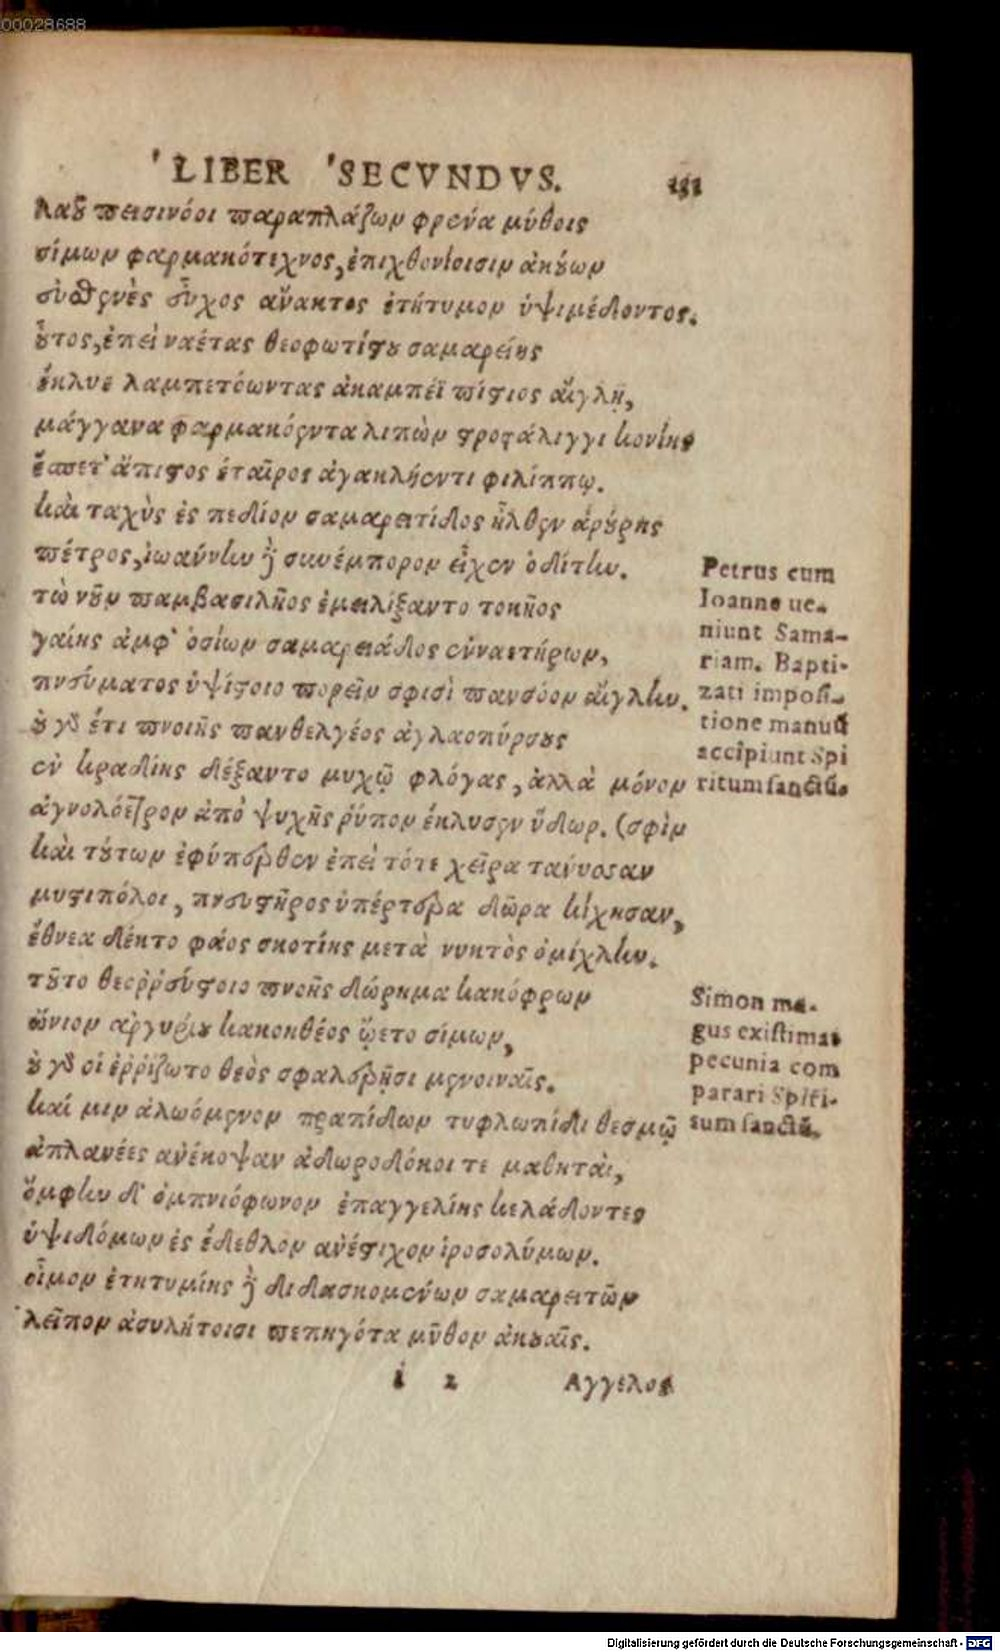 00028688
LIBER SECVNDVS. 131
λαοῦ πεισινόοι παραπλάζων φρένα μύθοις
σίμων φαρμακότεχνος, ἐπιχθονίοισιν ἀκούων
εὐσθενὲς εὖχος ἄνακτος ἐτήτυμον ὑψιμέδοντος.
οὗτος, ἐπεὶ ναέτας θεοφωτίστου σαμαρείης
ἔκλυε λαμπετόωντας ἀκαμπέϊ πίστιος αἴγλῃ,
μάγγανα φαρμακόεντα λιπὼν στροφάλιγγι κονίης
ἕσπετ' ἄπιστος ἑταῖρος ἀγακλήεντι φιλίππῳ.
καὶ ταχὺς ἐς πεδίον σαμαρειτίδος ἦλθεν ἀρούρης
πέτρος, ἰωάννην καὶ συνέμπορον εἶχεν ὁδίτην.
τὼ νῦν παμβασιλῆος ἐμειλίξαντο τοκῆος
γαίης ἀμφ' ὁσίων σαμαρειάδος ἐνναετήρων,
πνεύματος ὑψίστοιο πορεῖν σφισὶ πανσόον αἴγλην.
οὐ γὰρ ἔτι πνοιῆς πανθελγέος ἀγλαοπύρσους
ἐν κραδίης δέξαντο μυχῷ φλόγας, ἀλλὰ μόνον
ἁγνολόετρον ἀπὸ ψυχῆς ῥύπον ἔκλυσεν ὕδωρ. (σφὶν
καὶ τούτων ἐφύπερθεν ἐπεὶ τότε χεῖρα τάνυσαν
μυστιπόλοι, πνευστῆρος ὑπέρτερα δῶρα κίχησαν,
ἔθνεα δέκτο φάος σκοτίης μετὰ νυκτὸς ὁμίχλην.
τοῦτο θεορρεύστοιο πνοῆς δώρημα κακόφρων
ὤνιον ἀργυρίου κακοηθέος ᾤετο σίμων,
οὐ γὰρ οἱ ἐρρίζωτο θεὸς σφαλερῇσι μενοιναῖς.
καί μιν ἀλωόμενον πραπίδων τυφλωπίδι θεσμῷ
ἀπλανέες ἀνέκοψαν ἀδωροδόκοι τε μαθηταὶ,
ὄμφην δ' ὀμπνιόφωνον ἐπαγγελίης κελάδοντες
ὑψιδόμων ἐς ἔδεθλον ἀνέστιχον ἱροσολύμων.
οἶμον ἐτητυμίης καὶ διδασκομένων σαμαρειτῶν
λεῖπον ἀσυλήτοισι πεπηγότα μῦθον ἀκουαῖς.
i 2 Αγγελος
Petrus cum
Ioanne ue-
niunt Sama-
riam. Bapti-
zati imposi-
tione manuũ
accipiunt Spi
ritum sanctũ.
Simon ma-
gus existimat
pecunia com
parari Spiri-
tum sanctũ.
Digitalisierung gefördert durch die Deutsche Forschungsgemeinschaft - DFG